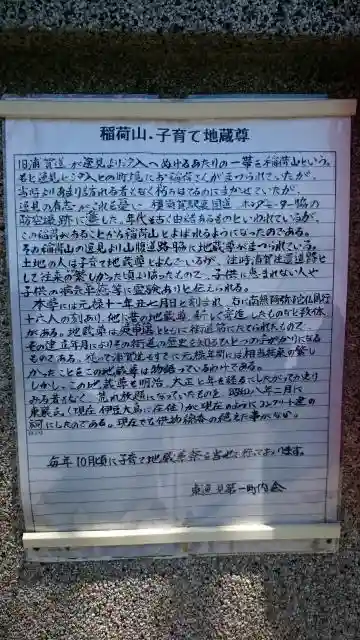 稲荷山・子育て地蔵尊
旧浦賀道が逸見より汐入へぬけるあたりの一帯を稲荷山という。
もと逸見と汐入との町境にお稲荷さんがまつられていたが、
当時よりあまり訪れる者となく朽ちはてるのにまかせていたが、
逸見の有志がこれを憂い、横須賀駅裏国道
防空壕跡に遷した。年代も古く由緒あるものといわれているが、
この稲荷があることから稲荷山とよばれるようになったのである。
その稲荷山の逸見より山勝道路脇に地蔵尊がまつられている。
土地の人は子育て地蔵尊とよんでいるが、往時浦賀往還道路と
して往来の繁しかった頃より祀ったもので、子供に恵まれない人や
子供の病気平癒等に霊験ありと伝えられる。
本尊には元禄十一年五七月日と刻まれ、右に南無阿弥陀仏同行
十六人の刻あり、他に昔の地蔵尊、新しく寄進したものなど数体
がある。地蔵尊は庚申塔とともに街道筋にたてられたもので、
その建立年月によりその街道の歴史を知るてひとつの手がかりになる
ものである。従って浦賀道もすでに元禄年間には相当往来の繁し
かったことをこの地蔵尊は物語っているわけである。
しかし、この地蔵尊も明治、大正と年を経るにしたがってかえり
みる者もなく、荒れ放題になっていたものを、昭和八年二月に
東 氏（現在伊豆大島に在住）が現在のようにコンクリート建の
祠にしたのである。現在でも供物線香の絶えた事がない。
毎年10月頃に子育て地蔵尊祭を当せて行っております。
東逸見第一町内会